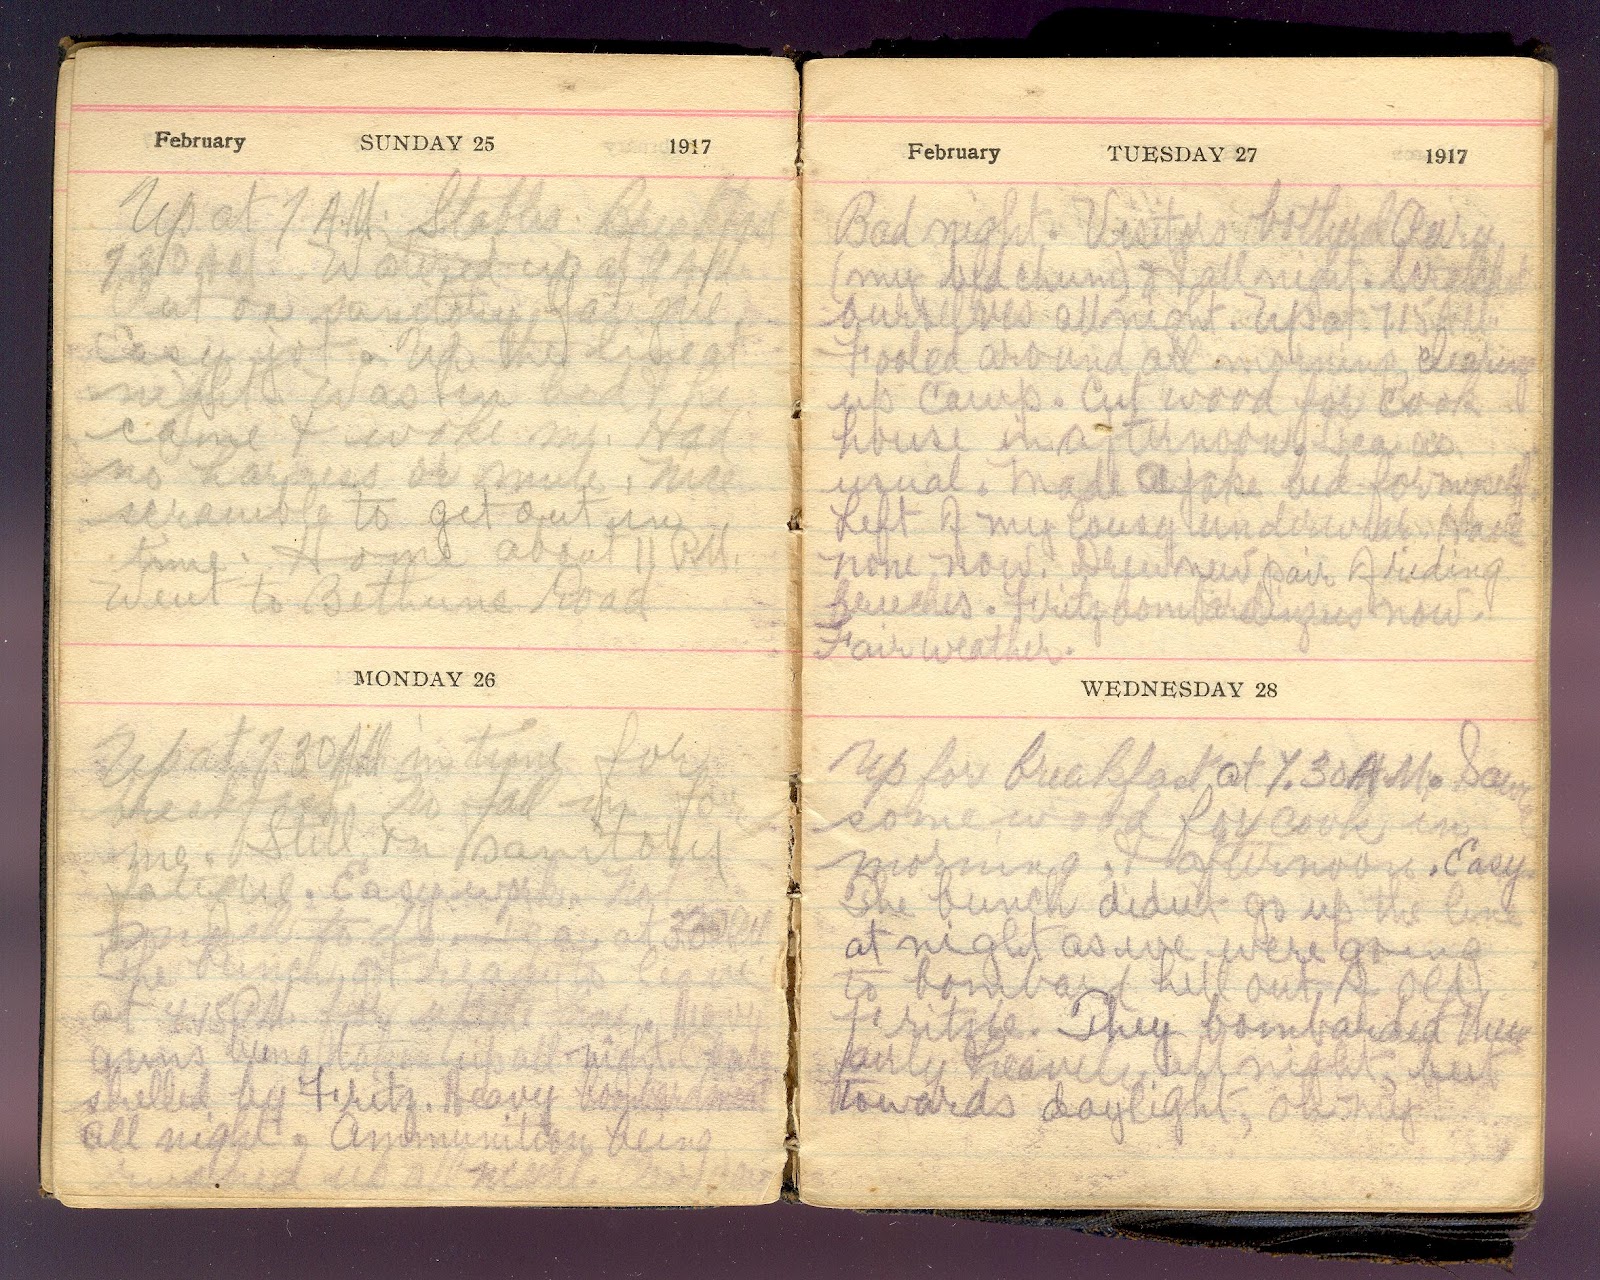 February SUNDAY 25 1917
Up at 7 A.M. Stables. Breakfast
7.30 A.M. Watered up at 9 A.M.
Put on sanitary fatigue.
Easy job. Up the line at
night. Was in bed &
came & woke me. Had
no harness or mule. Nice
scramble to get out in
time. Home about 11 P.M.
Went to Bethune Road
MONDAY 26
Up at 7.30 A.M. in time for
breakfast. No fall in for
me. Still on sanitary
fatigue. Easy work. Not
much to do. Tea at 3.30 P.M.
The bunch got ready to leave
at 4.15 P.M. for the line. Heavy
guns being taken up all night.
shelled by Fritz. Heavy bombardment
all night. Ammunition being
rushed up all night.
February TUESDAY 27 1917
Bad night. Visitors bothered
(my bed chum) & I all night. Scratched
ourselves all night. Up at 7.15 A.M.
Fooled around all morning cleaning
up camp. Cut wood for cook
house in afternoon. Tea as
usual. Made a jake bed for myself.
Left off my lousy underwear. Have
none now. Drew new pair of riding
breeches. Fritz bombarding us now.
Fair weather.
WEDNESDAY 28
Up for breakfast at 7.30 A.M. Sawed
some wood for cook in
morning & afternoon. Easy.
The bunch didn't go up the line
at night as we were going
to bombard hell out of old
Fritzie. They bombarded them
fairly heavily all night, but
towards daylight, oh my